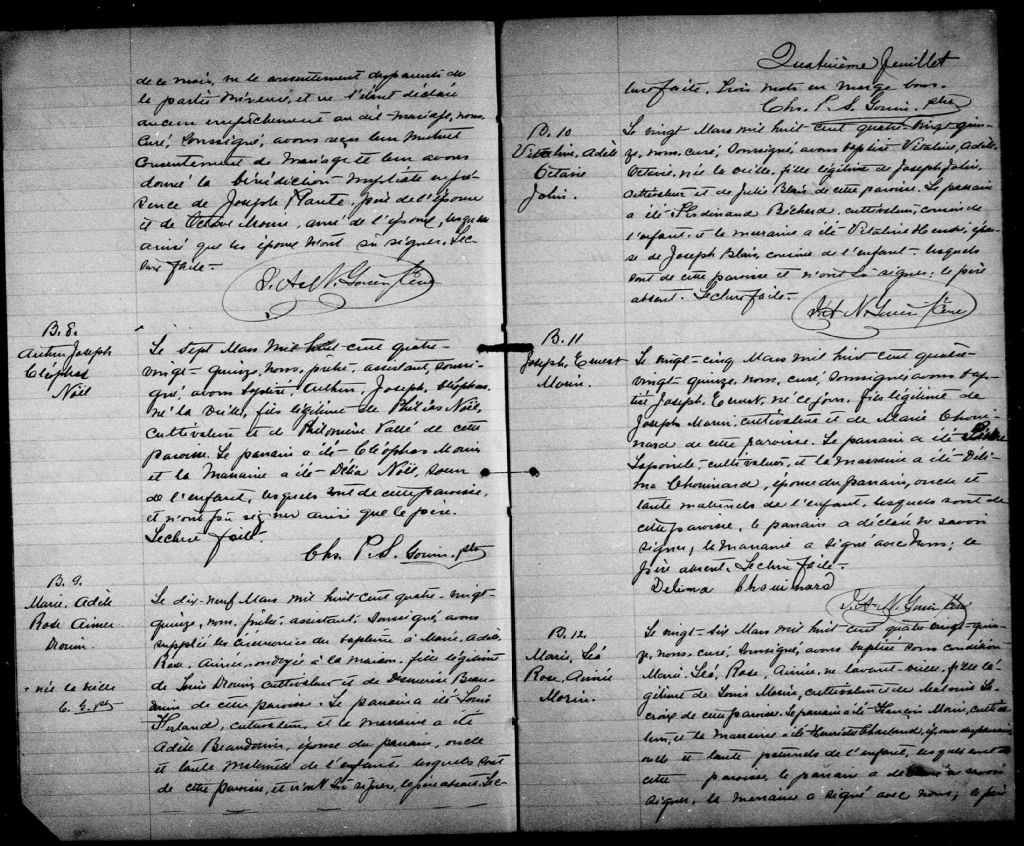 de ce mois, vu le consentement des parents de
la partie mineure, et ne s'étant déclaré
aucun empêchement au dit mariage, nous,
Curé, soussigné, avons reçu leur mutuel
Consentement de Mariage et leur avons
donné la bénédiction nuptiale en pré-
sence de Joseph Plante, père de l'épouse
et de Octave Morin, ami de l'époux, lesquels
ainsi que les époux n'ont su signer. Lec-
ture faite.
J. A. N. Gouin Ptre Curé
B. 8.
Arthur Joseph
Cléophas
Noël
Le sept Mars mil huit cent quatre-
vingt-quinze, nous, prêtre, assistant, soussi-
gné, avons baptisé, Arthur, Joseph, Cléophas,
né la veille, fils légitime de Noël,
cultivateur et de Philomène Vallé de cette
paroisse. Le parrain a été Cléophas Morin
et la Marraine a été Délia Noël, soeur
de l'enfant, lesquels sont de cette paroisse,
et n'ont pu signer ainsi que le père.
Lecture faite.
Chs. P. S. Gouin, ptre
B. 9.
Marie, Adèle
Rose Aimée
Drouin.
+ née la veille
C. G. ptre
Le dix-neuf Mars mil huit cent quatre-vingt-
quinze, nous, prêtre, assistant, soussigné, avons
suppléé les cérémonies du baptême à Marie, Adèle,
Rose, Aimée, ondoyée à la maison, fille légitime
de Louis Drouin, cultivateur et de Beau-
de cette paroisse. Le parrain a été Louis
cultivateur, et la marraine a été
Adèle Beaudouin, épouse du parrain, oncle
et tante maternels de l'enfant, lesquels sont
de cette paroisse, et n'ont su signer, le père absent. Lec-
Quatrième feuillet
ture faite. Trois mots en marge bons.
Chs. P. S. Gouin, ptre
B. 10
Vitaline, Adèle
Octavie
Jolin.
Le vingt Mars mil huit cent quatre-vingt-quin-
ze, nous, curé, soussigné, avons baptisé Vitaline, Adèle,
Octavie, née la veille, fille légitime de Joseph Jolin,
cultivateur et de Julie Blais de cette paroisse. Le parrain
a été Ferdinand Béchard, cultivateur, cousin de
l'enfant, et la marraine a été Vitaline épou-
se de Joseph Blais, cousine de l'enfant lesquels
sont de cette paroisse et n'ont su signer; le père
absent. Lecture faite.
J. A. N. Gouin Ptre Curé
B. 11
Joseph, Ernest
Morin.
Le vingt-cinq Mars mil huit cent quatre-
vingt-quinze, nous, curé, soussigné, avons bap-
tisé Joseph, Ernest, né ce jour, fils légitime de
Joseph Morin, cultivateur et de Marie Choui-
nard de cette paroisse. Le parrain a été
Lapointe, cultivateur, et la marraine a été Déli-
ma Chouinard, épouse du parrain, oncle et
tante maternels de l'enfant, lesquels sont de
cette paroisse, le parrain a déclaré ne savoir
signer, la marraine a signé avec nous; le
père absent. Lecture faite.
Delima Chouinard
J. A. N. Gouin Ptre Curé
B. 12
Marie, Léa
Rose, Aimée
Morin.
Le vingt-six Mars mil huit cent quatre vingt-quin-
ze, nous, curé, soussigné, avons baptisé sous condition
Marie, Léa, Rose, Aimée, née l'avant-veille, fille lé-
gitime de Louis Morin, cultivateur et de La-
croix de cette paroisse. Le parrain a été François Morin, cultiva-
teur, et la marraine a été Henriette Charland, épouse du parrain,
oncle et tante paternels de l'enfant, lesquels sont de
cette paroisse, le parrain a déclaré ne savoir
signer, la marraine a signé avec nous; le père